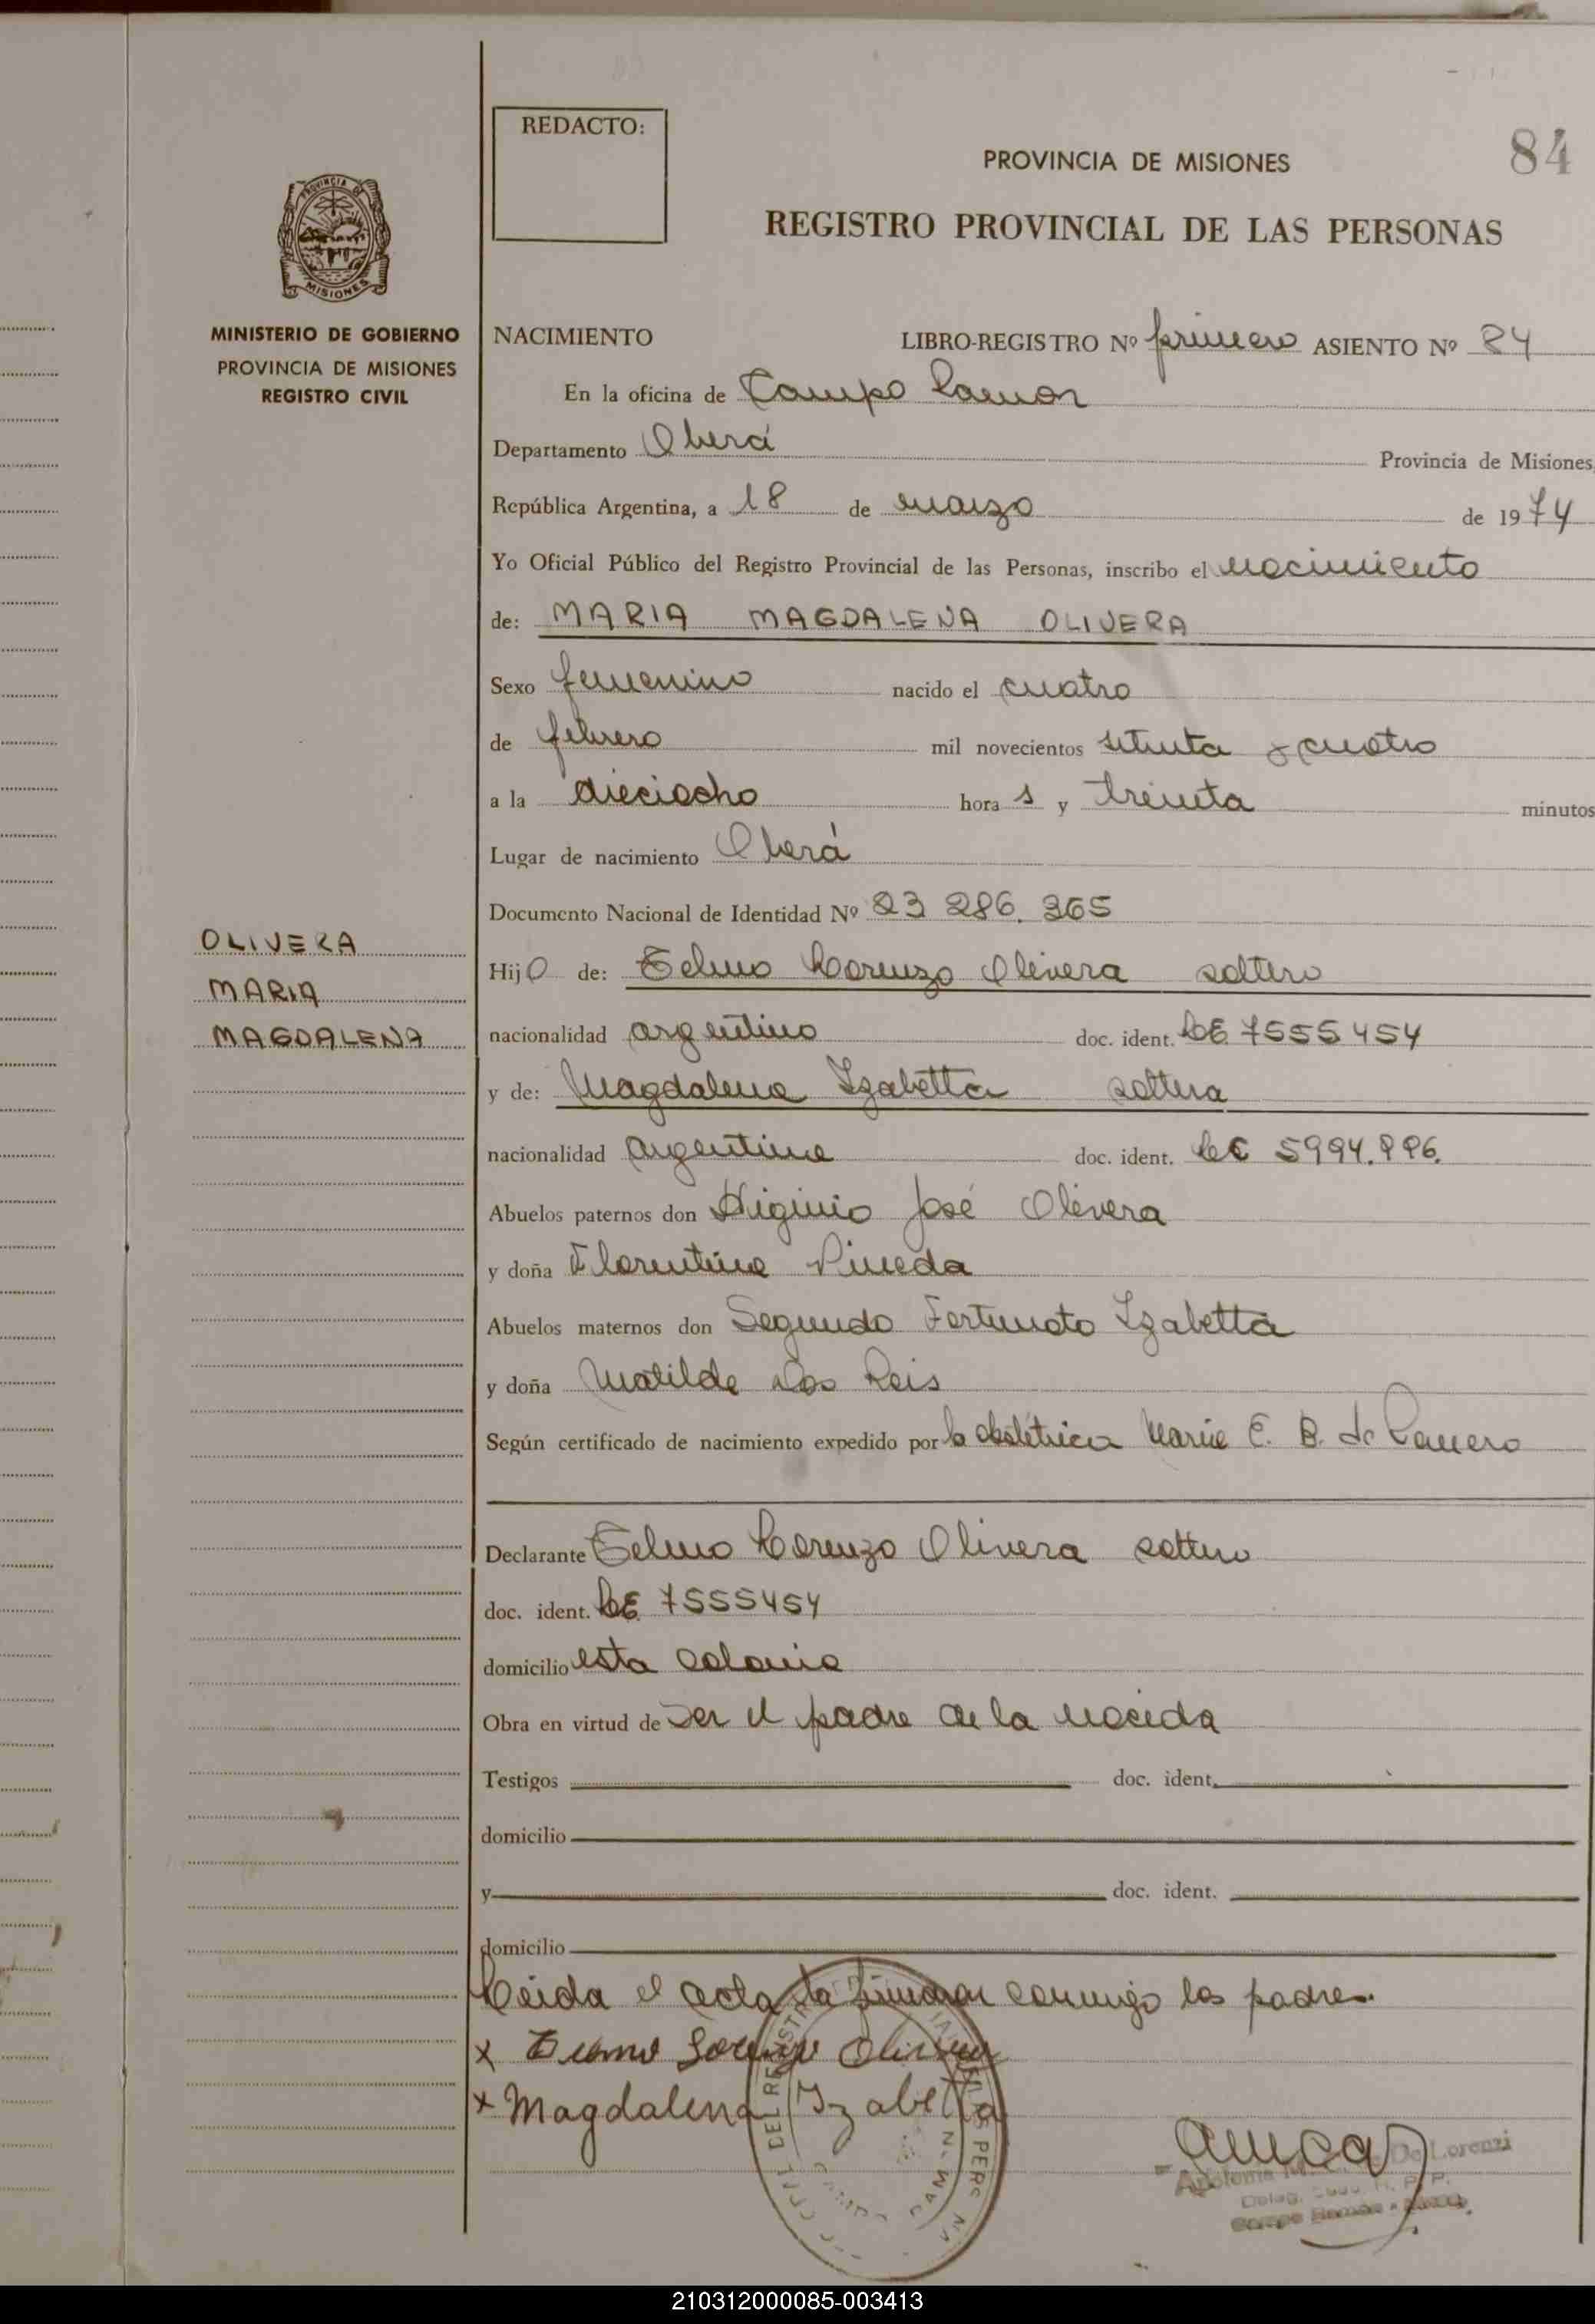 REDACTO:
PROVINCIA DE MISIONES
84
REGISTRO PROVINCIAL DE LAS PERSONAS
PROVINCIA DE
MISIONES
MINISTERIO DE GOBIERNO
PROVINCIA DE MISIONES
REGISTRO CIVIL
NACIMIENTO LIBRO-REGISTRO Nº primero ASIENTO Nº 84
En la oficina de Campo Ramon
Departamento Oberá Provincia de Misiones,
República Argentina, a 18 de marzo de 1974
Yo Oficial Público del Registro Provincial de las Personas, inscribo el nacimiento
de: MARIA MAGDALENA OLIVERA
Sexo femenino nacido el cuatro
de febrero mil novecientos setenta y cuatro
a la dieciocho hora s y treinta minutos
Lugar de nacimiento Oberá
Documento Nacional de Identidad Nº 23 286.365
OLIVERA
MARIA
MAGDALENA
Hijo de: Telmo Lorenzo Olivera soltero
nacionalidad argentino doc. ident. LE 7555454
y de: Magdalena Izabetta soltera
nacionalidad argentina doc. ident. LC 5994.996.
Abuelos paternos don Higinio José Olivera
y doña Florentina Pineda
Abuelos maternos don Segundo Fortunato Izabetta
y doña Matilde Dos Reis
Según certificado de nacimiento expedido por la obstétrica Maria E. B. de
Declarante Telmo Lorenzo Olivera soltero
doc. ident. LE 7555454
domicilio esta colonia
Obra en virtud de ser el padre de la nacida
Testigos doc. ident.
domicilio
y doc. ident.
domicilio
Leida el acta la firman conmigo los padres.
x Telmo Lorenzo Olivera
x Magdalena Izabetta
De Lorenzi
Campo Ramón
210312000085-003413